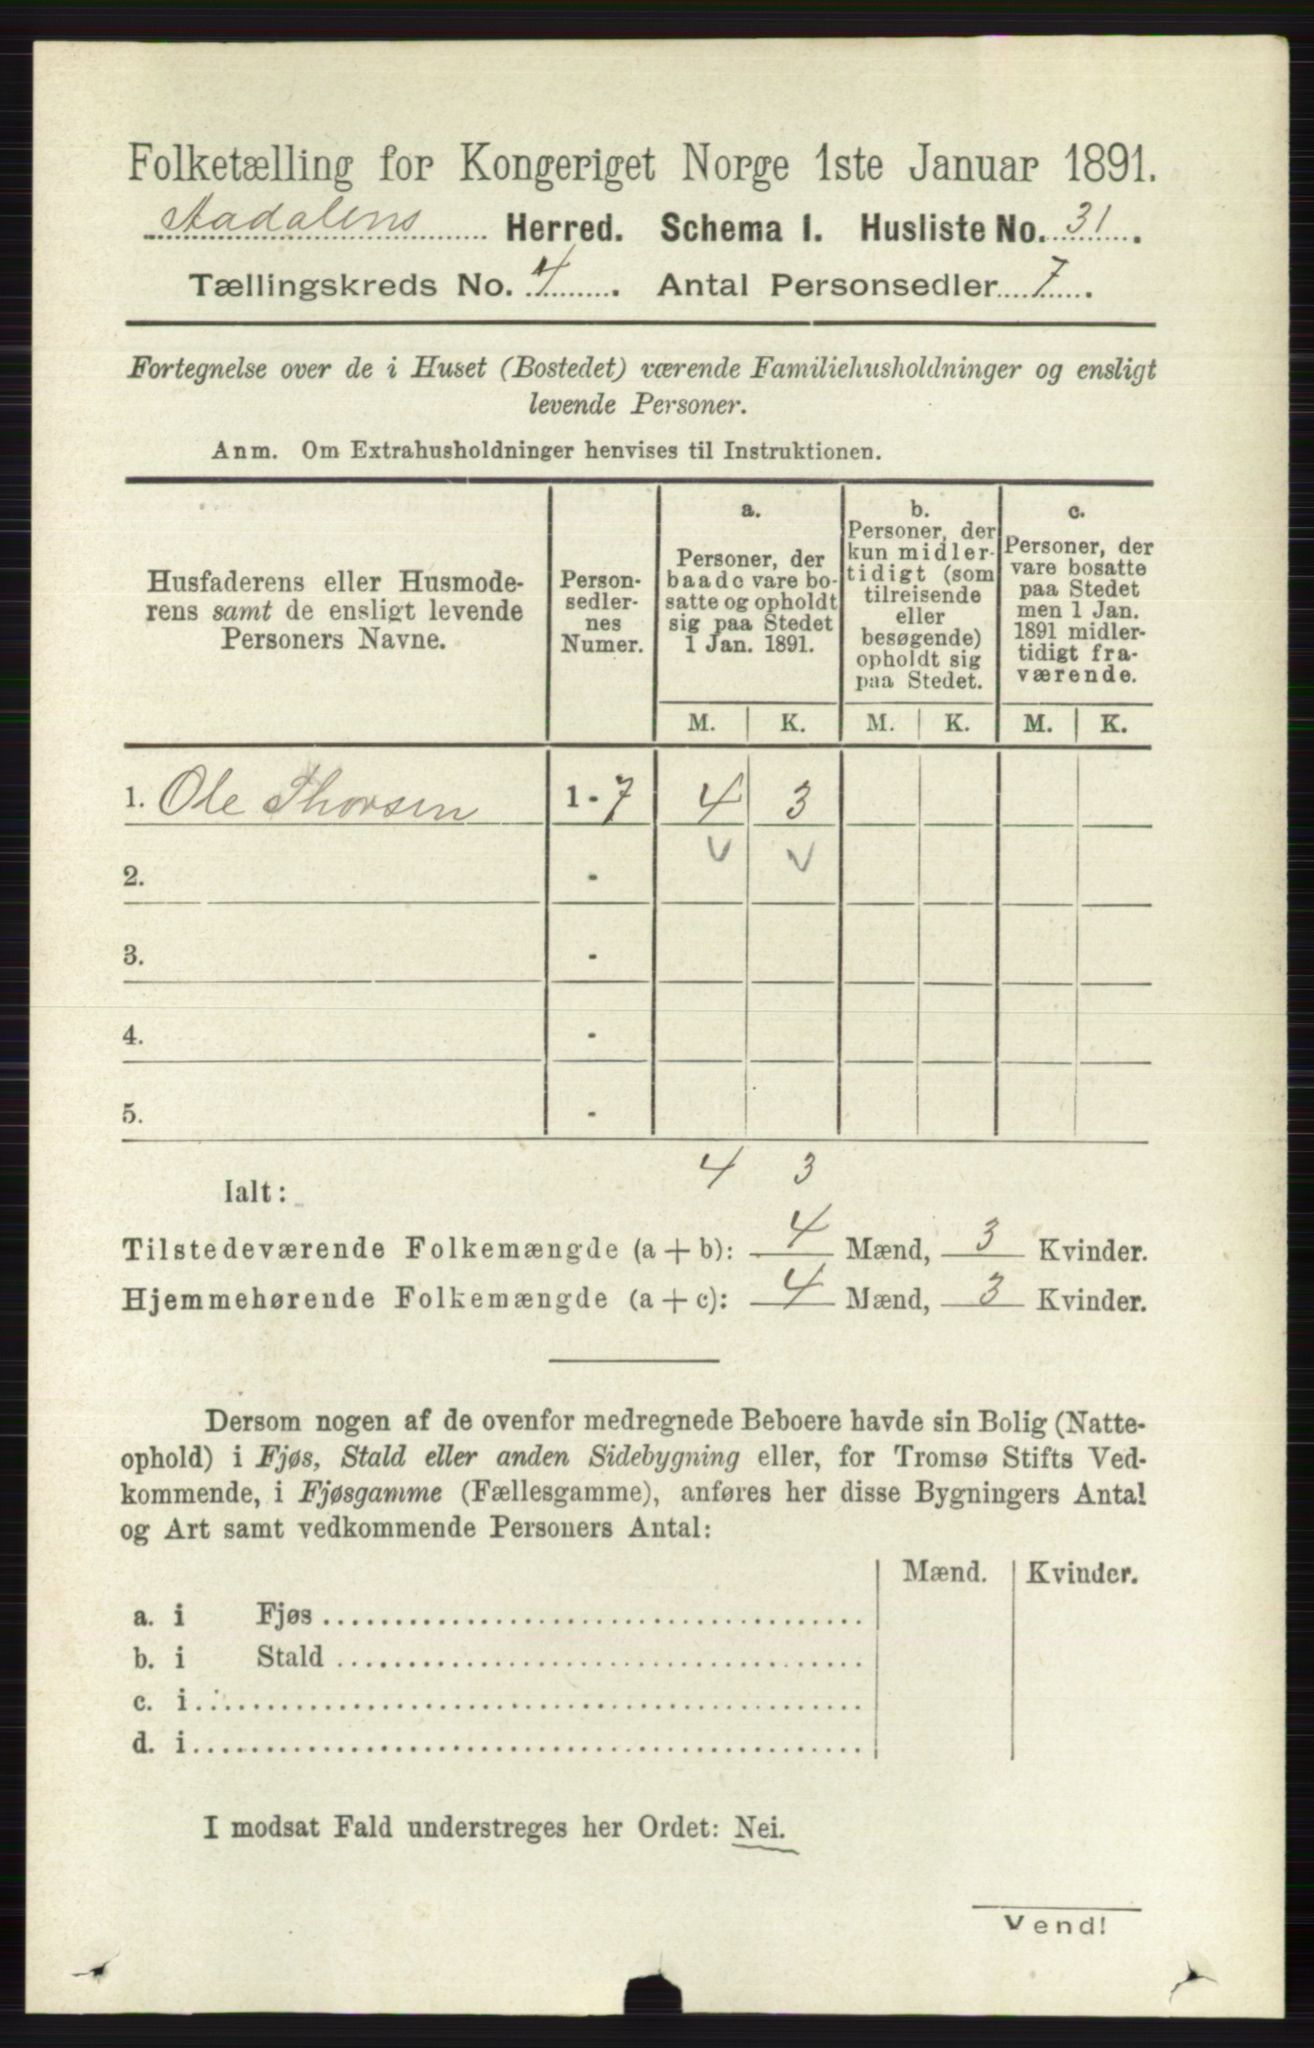 Folketælling for Kongeriget Norge 1ste Januar 1891.
Aadalens Herred. Schema I. Husliste No. 31.
Tællingskreds No. 4. Antal Personsedler 7.
Fortegnelse over de i Huset (Bostedet) værende Familiehusholdninger og ensligt
levende Personer.
Anm. Om Extrahusholdninger henvises til Instruktionen.
Husfaderens eller Husmode-
rens samt de ensligt levende
Personers Navne.
Person-
sedler-
nes
Numer.
a.
Personer, der
baade vare bo-
satte og opholdt
sig paa Stedet
1 Jan. 1891.
b.
Personer, der
kun midler-
tidigt (som
tilreisende
eller
besøgende)
opholdt sig
paa Stedet.
c.
Personer, der
vare bosatte
paa Stedet
men 1 Jan.
1891 midler-
tidigt fra-
værende.
M. K. M. K. M. K.
1. Ole Thorsen 1 - 7 4 3
2. -
3. -
4. -
5. -
4 3
Ialt:
Tilstedeværende Folkemængde (a + b): 4 Mænd, 3 Kvinder.
Hjemmehørende Folkemængde (a + c): 4 Mænd, 3 Kvinder.
Dersom nogen af de ovenfor medregnede Beboere havde sin Bolig (Natte-
ophold) i Fjøs, Stald eller anden Sidebygning eller, for Tromsø Stifts Ved-
kommende, i Fjøsgamme (Fællesgamme), anføres her disse Bygningers Antal
og Art samt vedkommende Personers Antal:
Mænd. Kvinder.
a. i Fjøs
b. i Stald
c. i
d. i
I modsat Fald understreges her Ordet: Nei.
Vend!